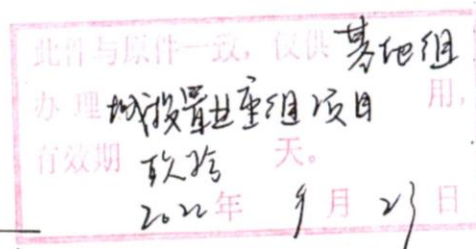 此件与原件一致，仅供基地组
办理城投置业重组项目用，
有效期玖拾天。
2022年9月23日